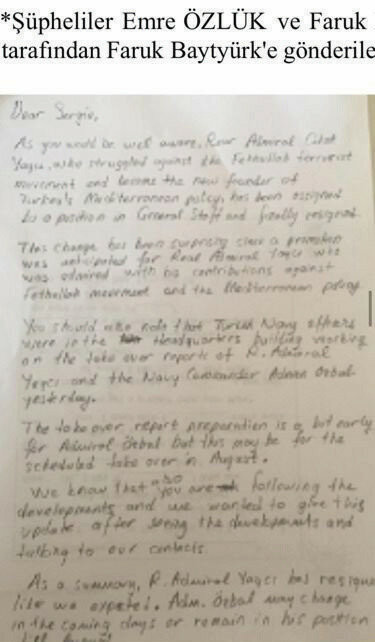 *Şüpheliler Emre ÖZLÜK ve Faruk
tarafından Faruk Baytyürk'e gönderile
Dear Sergio,
As you would be well aware, Rear Admiral Cihat
Yaycı, who struggled against the Fethullah terrorist
movement and became the new founder of
Turkey's Mediterranean policy, has been assigned
to a position in General Staff and finally resigned.
This change has been surprising since a promotion
was anticipated for Real Admiral Yaycı who
was admired with his contributions against
Fethullah movement and the Mediterranean policy
You should also note that Turkish Navy officers
were in the Headquarters building working
on the take over reports of R. Admiral
Yaycı and the Navy Commander Adnan Özbal
yesterday.
The take over report preparation is a bit early
for Admiral Özbal but this may be for the
scheduled take over in August.
We know that you also are following the
developments and we wanted to give this
update after seeing the developments and
talking to our contacts.
As a summary, R. Admiral Yaycı has resigned
like we expected. Adm. Özbal may change
in the coming days or remain in his position
till August